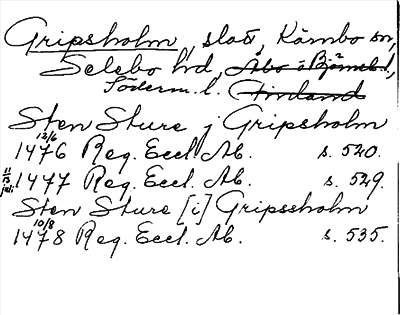 Gripsholm, slott, Kärnbo sn,
Selebo hd, Åbo o Björneb. l.,
Söderm. l. Finland
Sten Sture j Gripsholm
12/6
1476 Reg. Eccl. Ab. s. 520.
11/13 juli 1477 Reg. Eccl. Ab. s. 529.
Sten Sture [i] Gripssholm
10/8
1478 Reg. Eccl. Ab. s. 535.